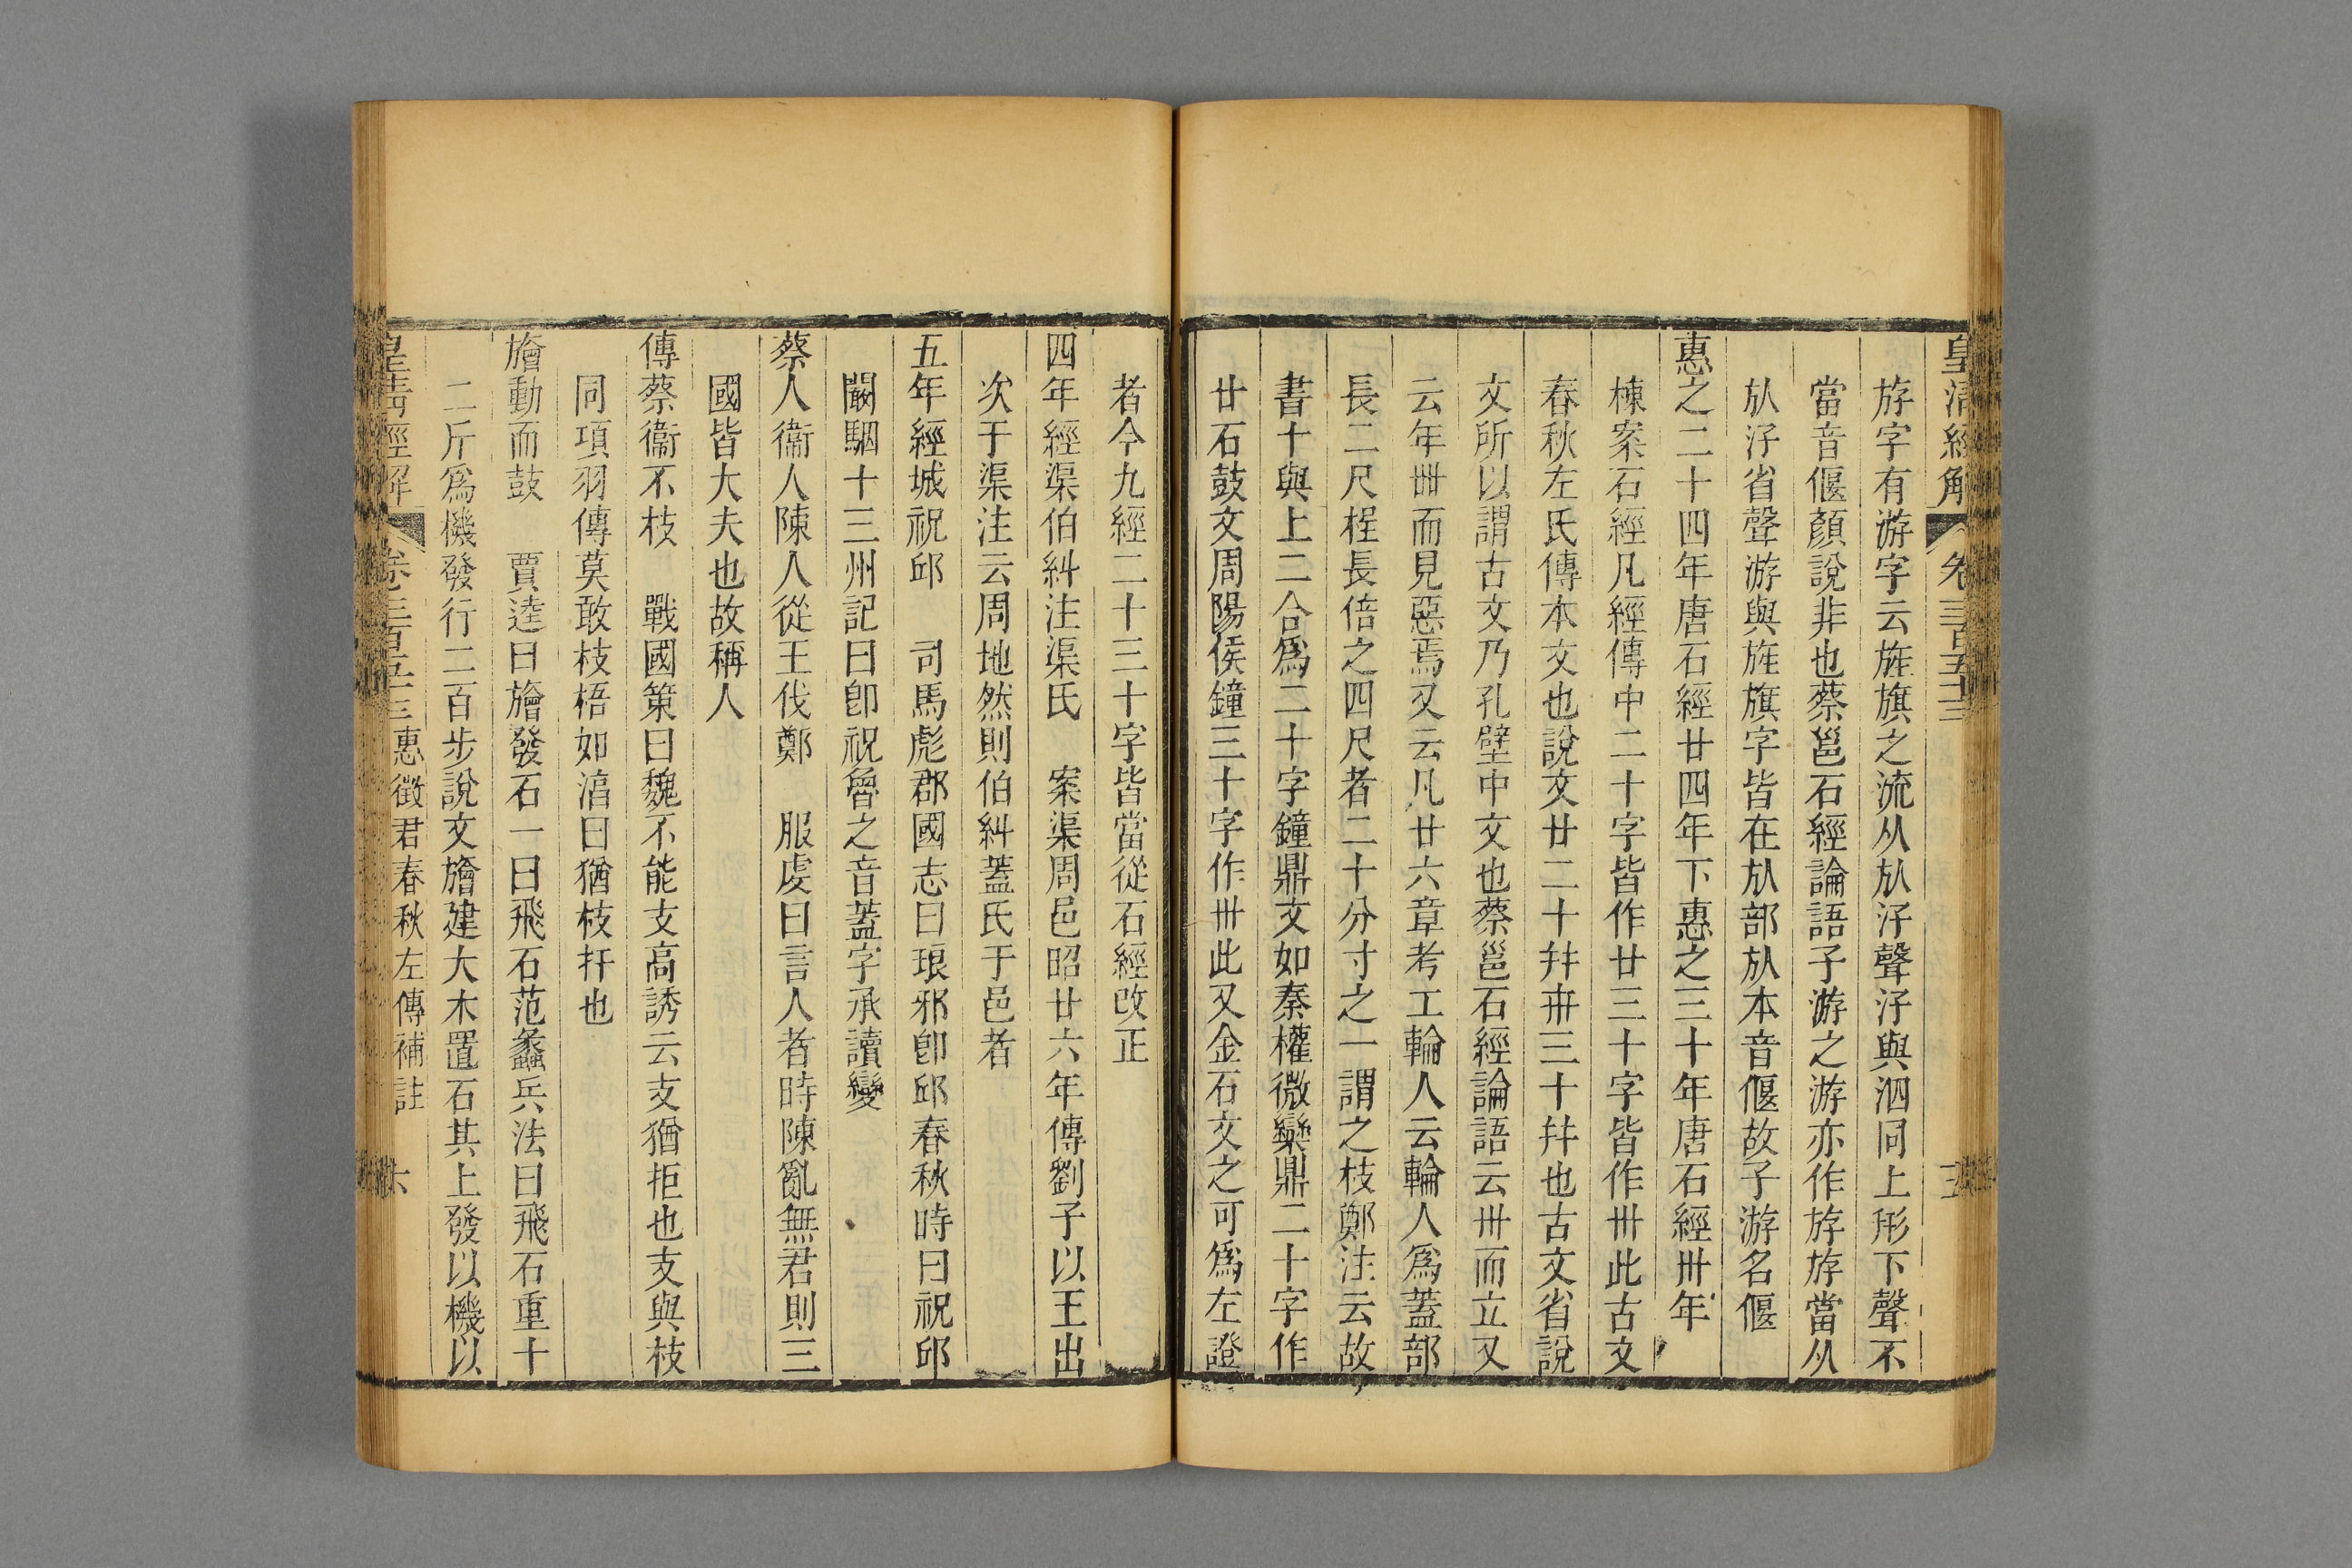 皇清經解 卷三百五十三
斿字有游字云旌旗之流从㫃汓聲汓與泅同上形下聲不
當音偃顏說非也蔡邕石經論語子游之游亦作斿斿當从
㫃汓省聲游與旌旗字皆在㫃部㫃本音偃故子游名偃
惠之二十四年唐石經廿四年下惠之三十年唐石經卅年
棟案石經凡經傳中二十字皆作廿三十字皆作卅此古文
春秋左氏傳本文也說文廿二十幷卉三十幷也古文省說
文所以謂古文乃孔壁中文也蔡邕石經論語云卅而立又
云年卌而見惡焉又云凡廿六章考工輪人云輪人爲蓋部
長二尺桯長倍之四尺者二十分寸之一謂之枝鄭注云故
書十與上二合爲二十字鐘鼎文如秦權微欒鼎二十字作
廿石鼓文周陽侯鐘三十字作卅此又金石文之可爲左證
者今九經二十三十字皆當從石經改正
四年經渠伯糾注渠氏 案渠周邑昭廿六年傳劉子以王出
次于渠注云周地然則伯糾蓋氏于邑者
五年經城祝邱 司馬彪郡國志曰琅邪卽邱春秋時曰祝邱
闞駰十三州記曰卽祝魯之音蓋字承讀變
蔡人衞人陳人從王伐鄭 服虔曰言人者時陳亂無君則三
國皆大夫也故稱人
傳蔡衞不枝 戰國策曰魏不能支高誘云支猶拒也支與枝
同項羽傳莫敢枝梧如湻曰猶枝扞也
旝動而鼓 賈逵曰旝發石一曰飛石范蠡兵法曰飛石重十
二斤爲機發行二百步說文旝建大木置石其上發以機以
皇清經解 卷三百五十三 惠徵君春秋左傳補註 六